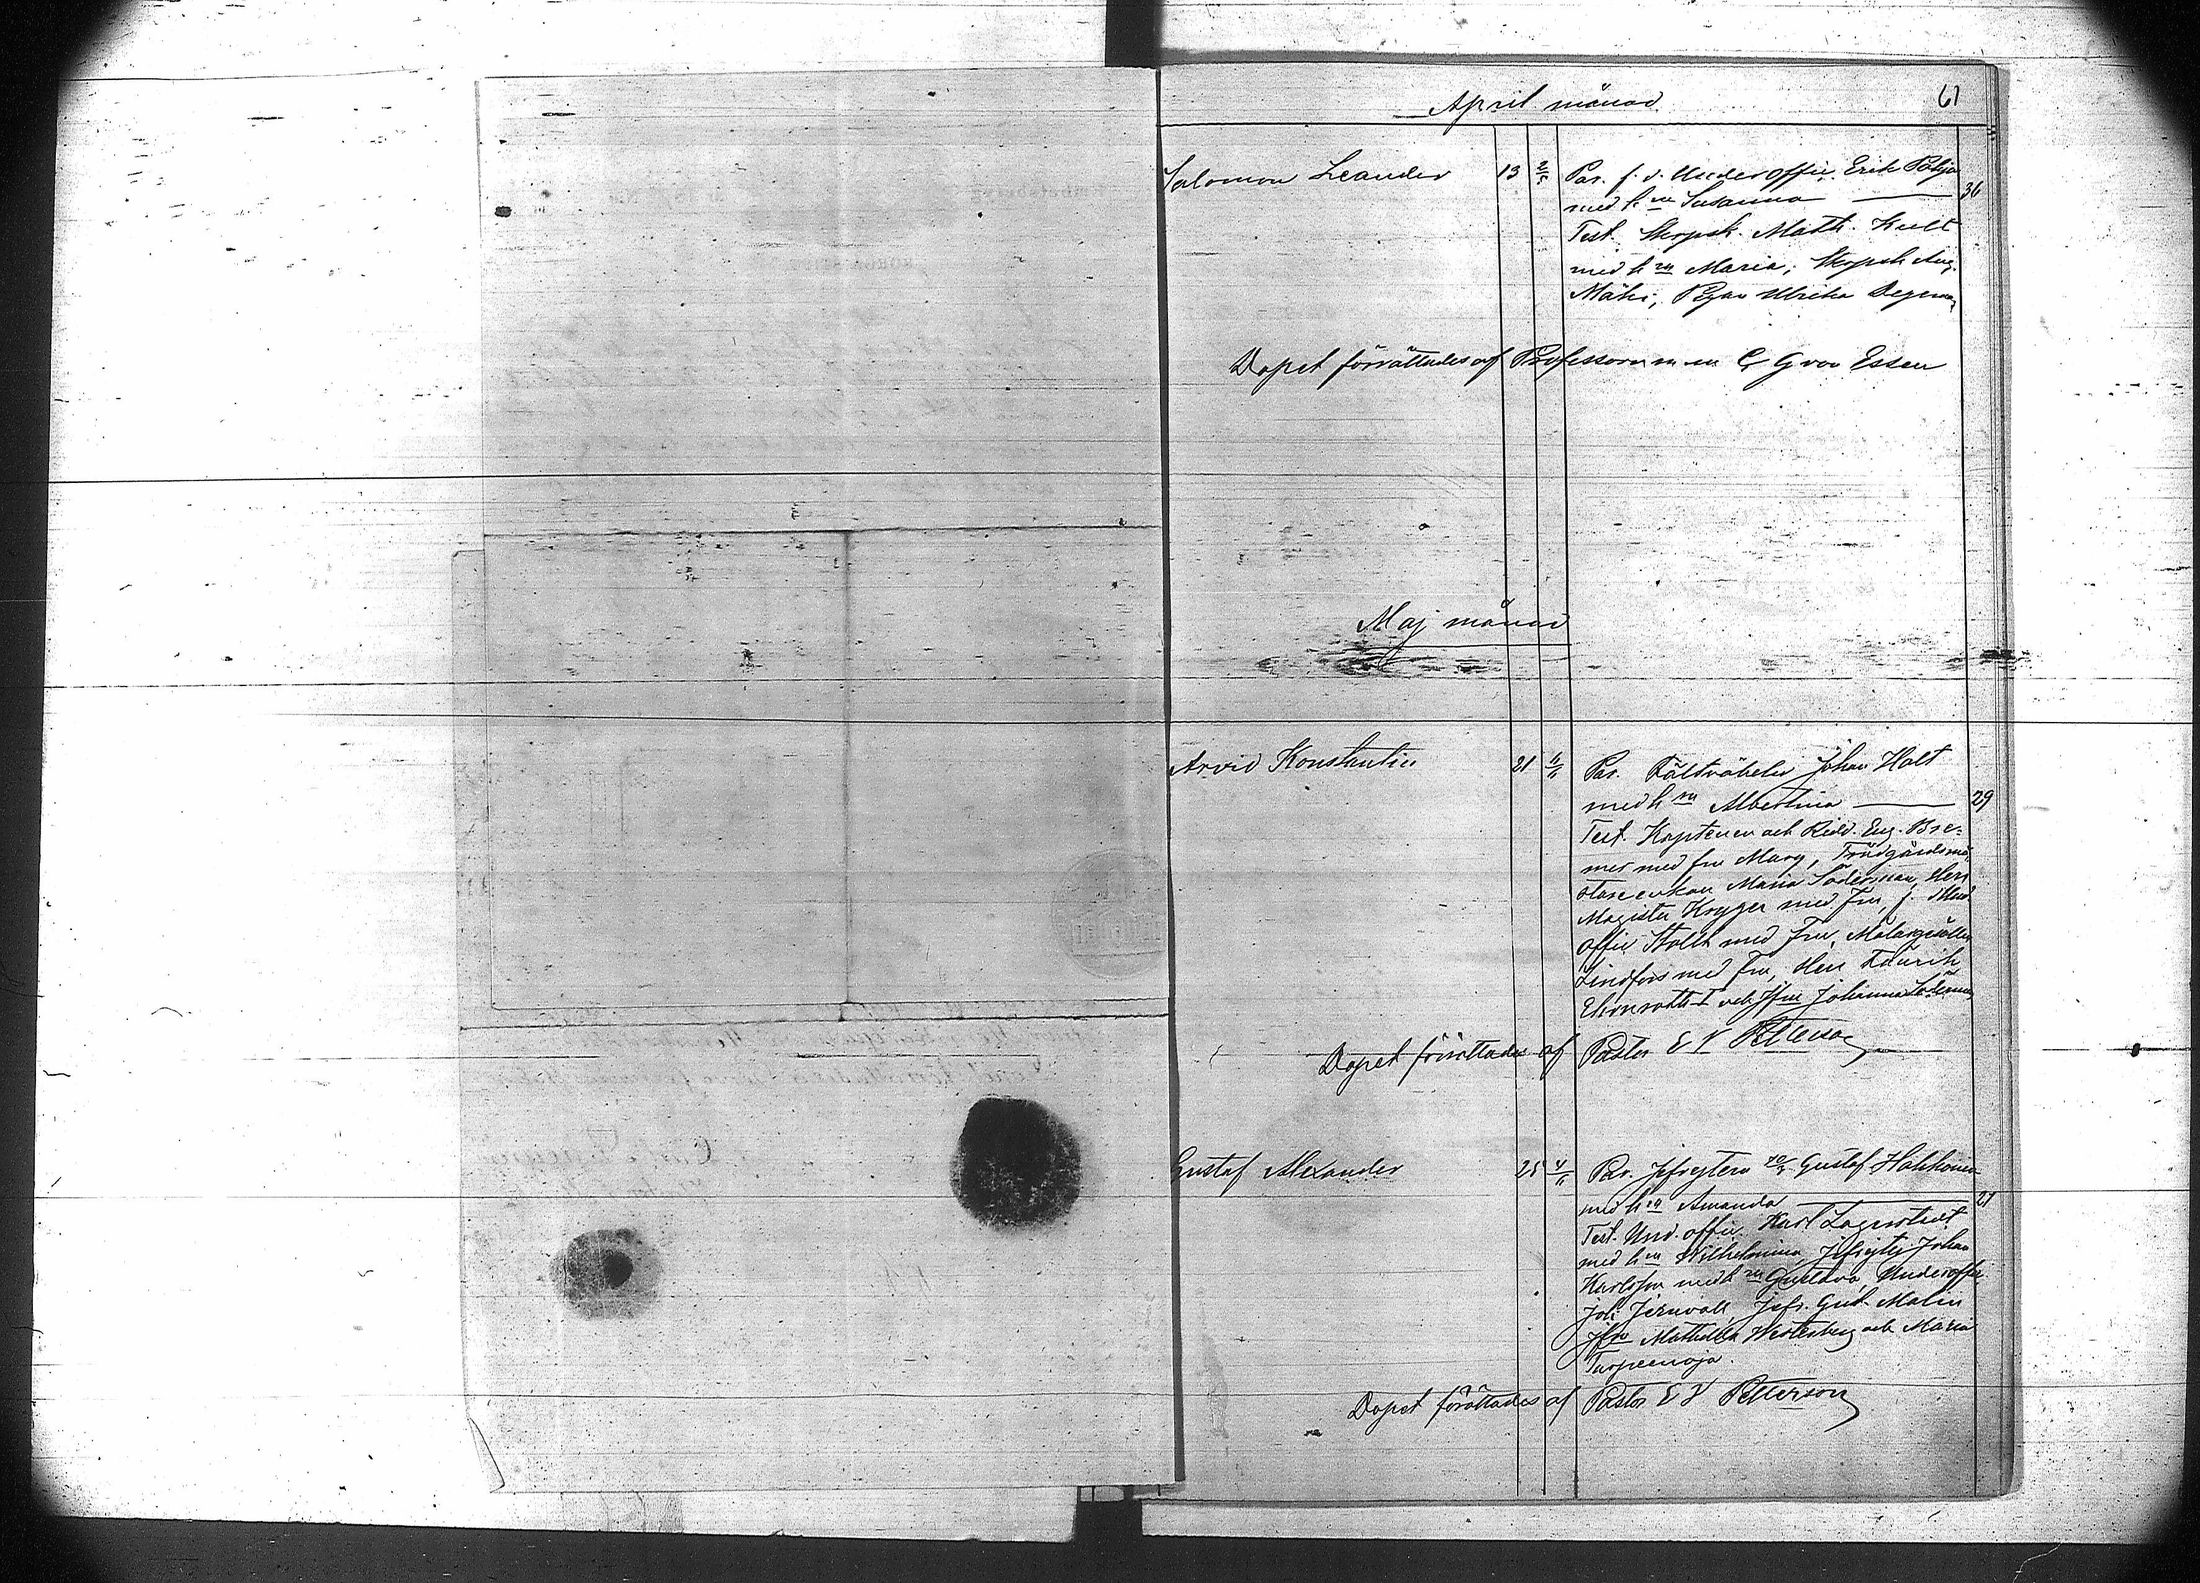 April månad
61
Salomon Leander 13 2/5 Par. f. d. Underoffic. Erik Pohja
med h m Susanna — 36
Test. Skrpsk. Math. Kult
med h m Maria; Skrpsk Aug.
Mäki; Pigan Ulrika
Dopet förrättades af Professorn m m C G von Essen
Maj månad
Arvid Konstantin 21 Par. Fältväbeln Johan Holt
med h m Albertina — 29
Test. Kaptenen och Ridd. Eug. Bre-
mer med fru Mary, Trädgårdsmä-
stare enkan Maria Söderman, Herr
Magister Krygger med Fru, f. Und.
offic Stolt med Fru, Målargesällen
Lindfors med Fru, Herr
och Jfru Johanna Söderman
Dopet förrättades af Pastor E V Petterson
Gustaf Alexander 25 4/6 Par. Jefreytern Gustaf Hakkonen
med h m Amanda — 21
Test. Und. offic. Karl Lagerstedt
med h m Wilhelmina, Jefreytj. Johan
Karlsson med h m Gustava, Underoffic.
Joh. Jernvall, Jefr. Gust. Malin
Jfru Mathilda Westerberg och Maria
Turpeenoja.
Dopet förrättades af Pastor E V Petterson